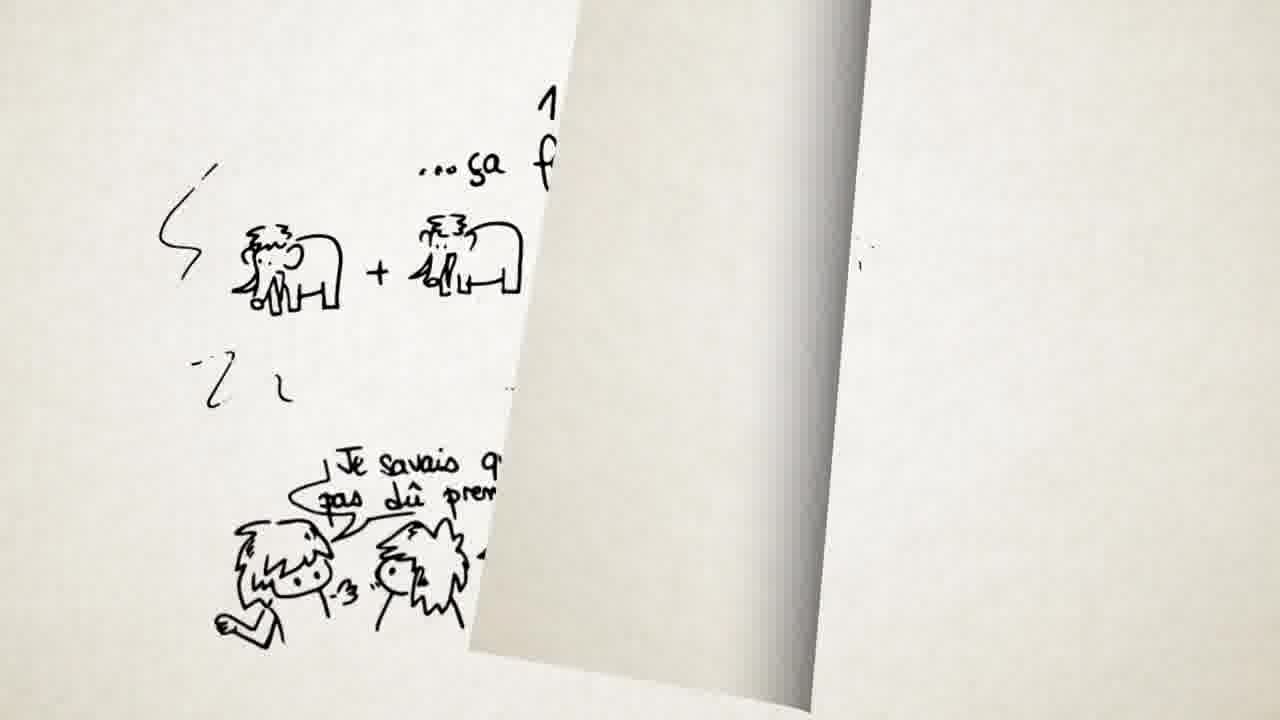 1
...ça f
+
Je savais q
pas dû pren